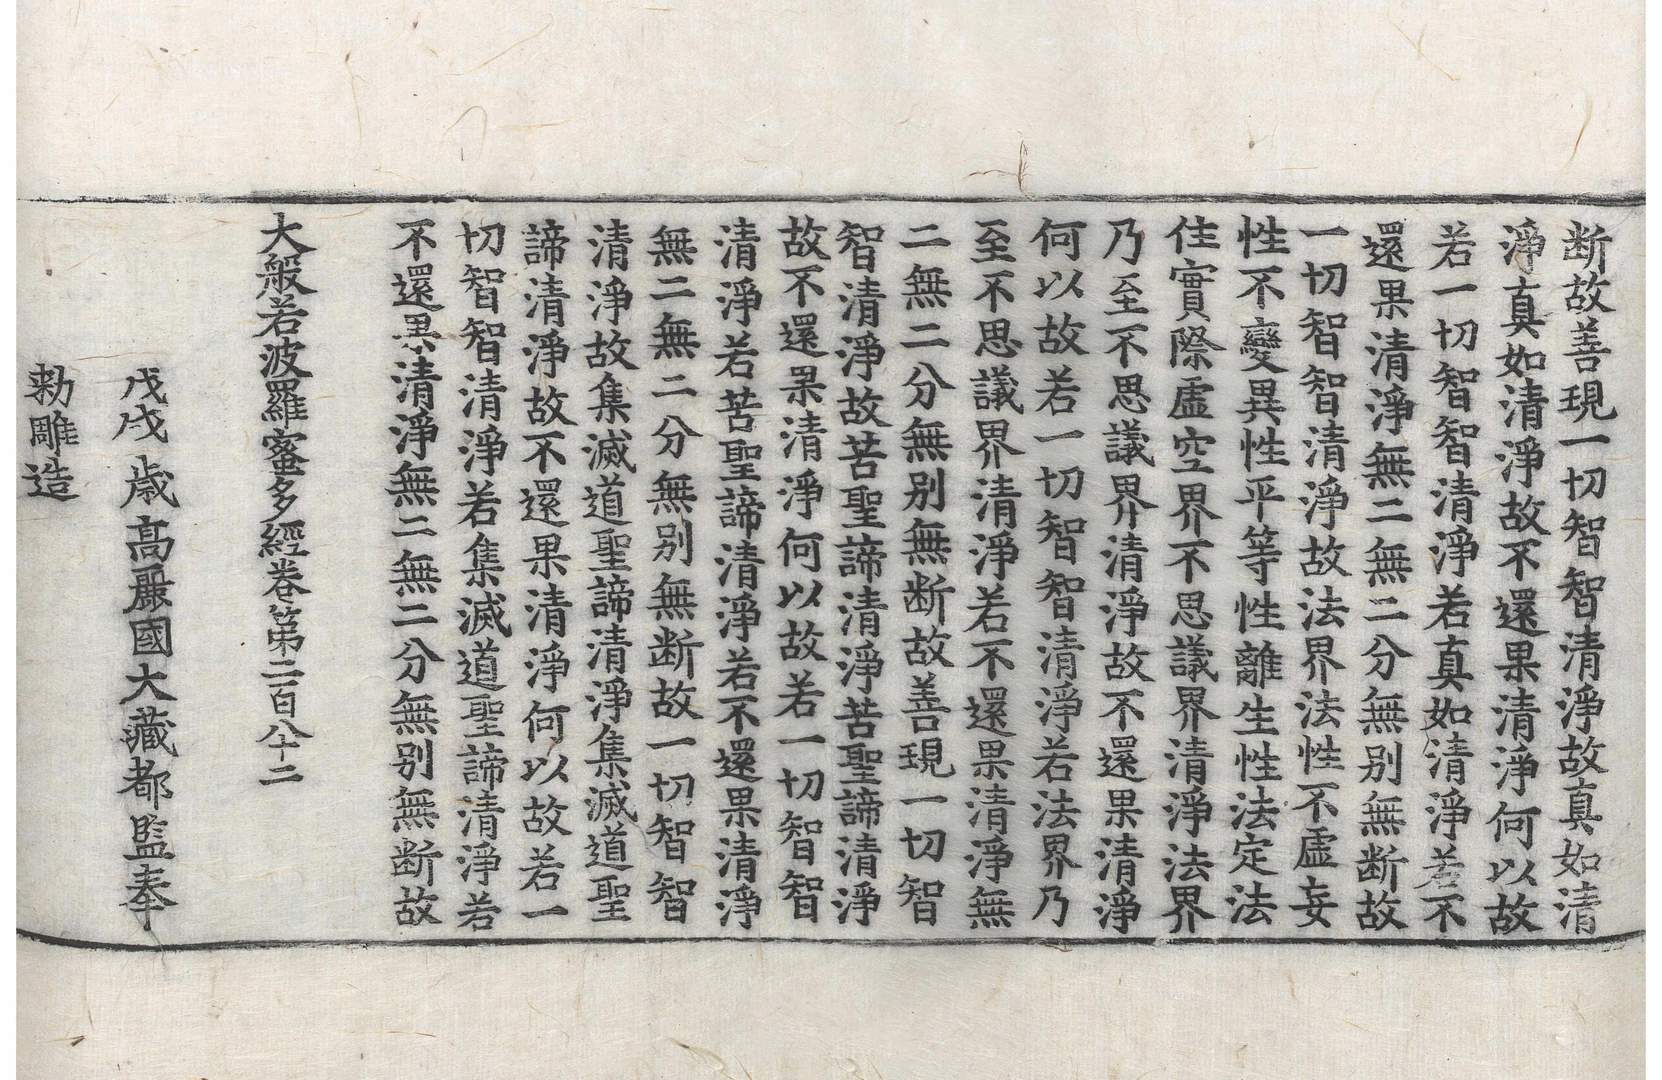 断故善現一切智智清淨故真如清
淨真如清淨故不還果清淨何以故
若一切智智清淨若真如清淨若不
還果清淨無二無二分無別無断故
一切智智清淨故法界法性不虛妄
性不變異性平等性離生性法定法
住實際虛空界不思議界清淨法界
乃至不思議界清淨故不還果清淨
何以故若一切智智清淨若法界乃
至不思議界清淨若不還果清淨無
二無二分無別無断故善現一切智
智清淨故苦聖諦清淨苦聖諦清淨
故不還果清淨何以故若一切智智
清淨若苦聖諦清淨若不還果清淨
無二無二分無別無断故一切智智
清淨故集滅道聖諦清淨集滅道聖
諦清淨故不還果清淨何以故若一
切智智清淨若集滅道聖諦清淨若
不還果清淨無二無二分無別無断故
大般若波羅蜜多經卷第二百八十二
戊戌歲高麗國大藏都監奉
勅雕造